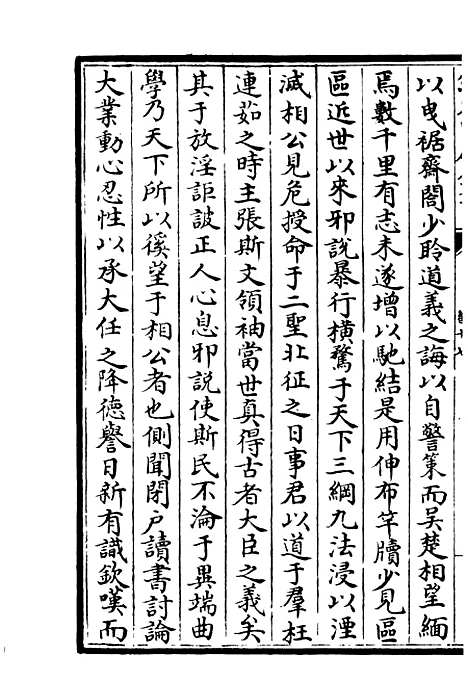 以曵裾齋閤少聆道義之誨以自警策而吳楚相望緬
焉數千里有志未遂增以馳結是用伸布竿牘少見區
區近世以來邪說暴行橫騖于天下三綱九法浸以湮
滅相公見危授命于二聖北征之日事君以道于羣枉
連茹之時主張斯文領袖當世真得古者大臣之義矣
其于放淫詎詖正人心息邪說使斯民不淪于異端曲
學乃天下所以徯望于相公者也側聞閉户讀書討論
大業動心忍性以承大任之降德譽日新有識欽嘆而